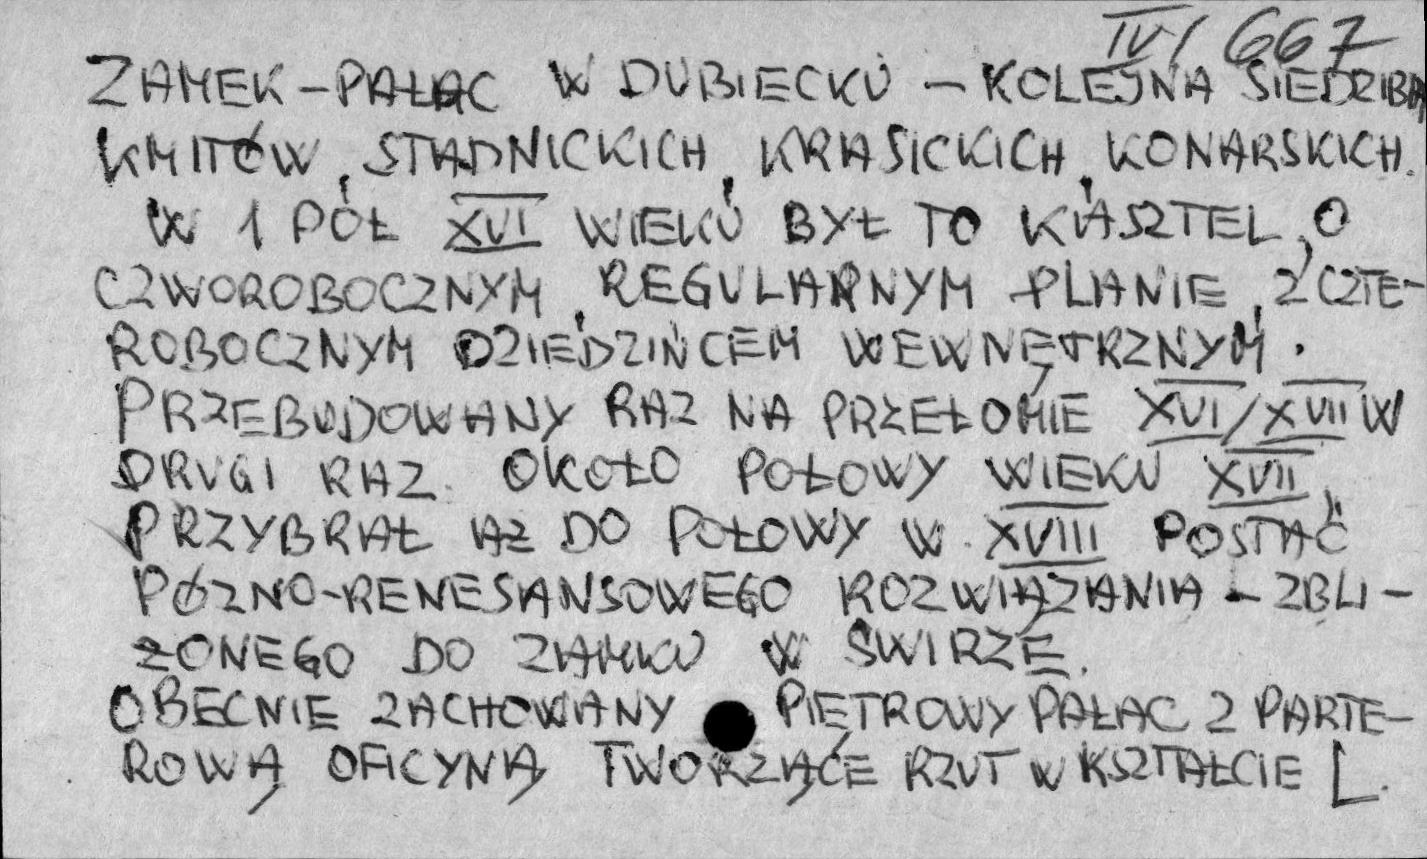 IV/667
ZAMEK-PAŁAC W DUBIECKU - KOLEJNA SIEDZIBA
KMITÓW, STADNICKICH, KRASICKICH, KONARSKICH.
W 1 PÓŁ XVI WIEKU BYŁ TO KASZTEL, O
CZWOROBOCZNYM, REGULARNYM PLANIE, Z CZTE-
ROBOCZNYM DZIEDZIŃCEM WEWNĘTRZNYM.
PRZEBUDOWANY RAZ NA PRZEŁOMIE XVI/XVII W
DRUGI RAZ OKOŁO POŁOWY WIEKU XVII,
PRZYBRAŁ AŻ DO POŁOWY W. XVIII POSTAĆ
PÓZNO-RENESANSOWEGO ROZWIĄZANIA - ZBLI-
ŻONEGO DO ZAMKU W ŚWIRZE.
OBECNIE ZACHOWANY PIĘTROWY PAŁAC Z PARTE-
ROWĄ OFICYNĄ TWORZĄCE RZUT W KSZTAŁCIE L.